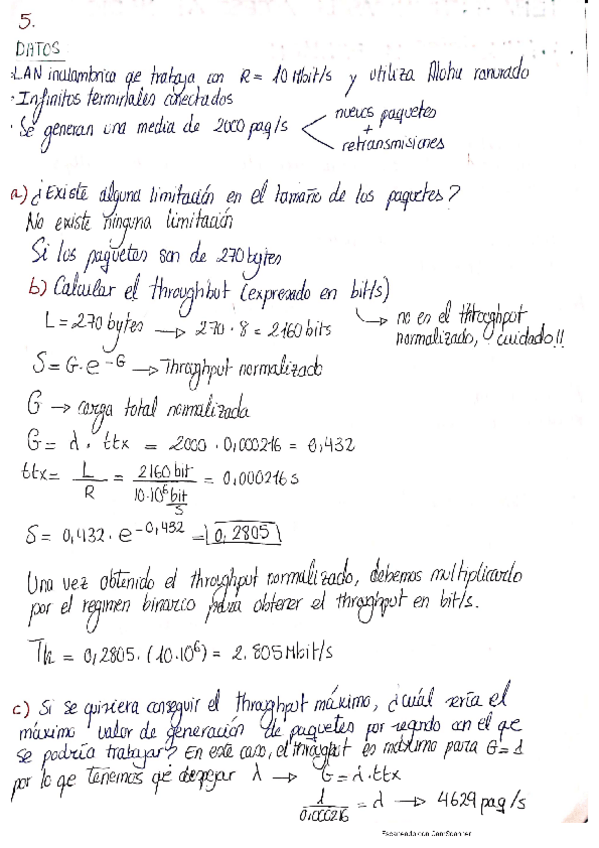 5.
DATOS
·LAN inalambrica que trabaja con R = 10 Mbit/s y utiliza Aloha ranurado
·Infinitos terminales conectados
·Se generan una media de 2000 paq/s < nuevos paquetes + retransmisiones
a) ¿Existe alguna limitación en el tamaño de los paquetes?
No existe ninguna limitación
Si los paquetes son de 270 bytes
b) Calcular el throughput (expresado en bit/s)
↳ no es el throughput normalizado, cuidado!!
L = 270 bytes → 270 · 8 = 2160 bits
S = G · e^-G → Throughput normalizado
G → carga total normalizada
G = λ · ttx = 2000 · 0,000216 = 0,432
ttx = L / R = 2160 bit / 10·10^6 bit/s = 0.000216 s
S = 0,432 · e^-0,432 = 0.2805
Una vez obtenido el throughput normalizado, debemos multiplicarlo
por el regimen binario para obtener el throughput en bit/s.
Th = 0,2805 · (10·10^6) = 2.805 Mbit/s
c) Si se quisiera conseguir el throughput máximo, ¿cuál sería el
máximo valor de generación de paquetes por segundo con el que
se podría trabajar? En este caso, el throughput es máximo para G=1
por lo que tenemos que despejar λ → G = λ · ttx
1 / 0.000216 = λ → 4629 paq/s
Escaneado con CamScanner